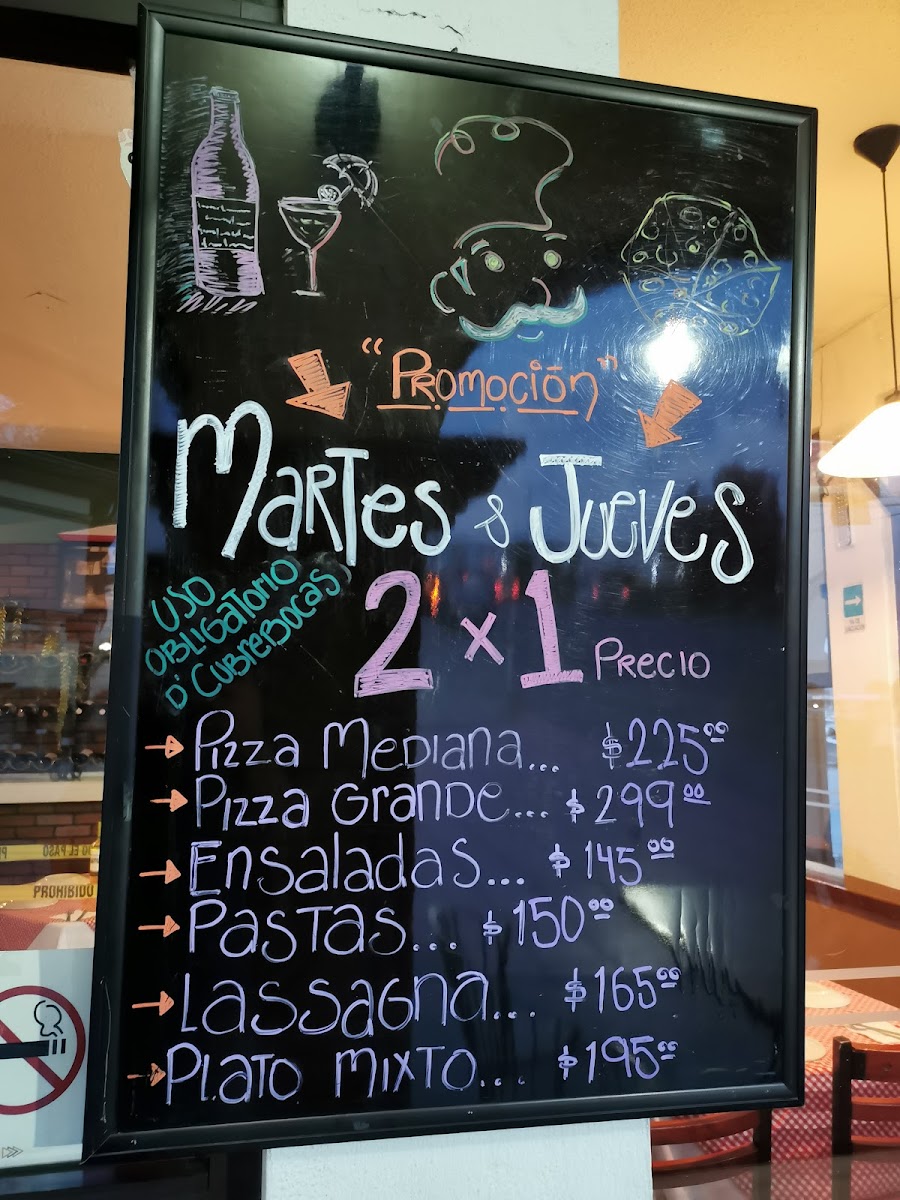 "Promoción"
Martes & Jueves
USO
OBLIGATORIO
D' CUBREBOCAS
2 x 1 PRECIO
Pizza Mediana... $225.00
Pizza Grande... $299.00
Ensaladas... $145.00
Pastas... $150.00
Lassagna... $165.00
Plato Mixto... $195.00
PROHIBIDO
O EL PASO